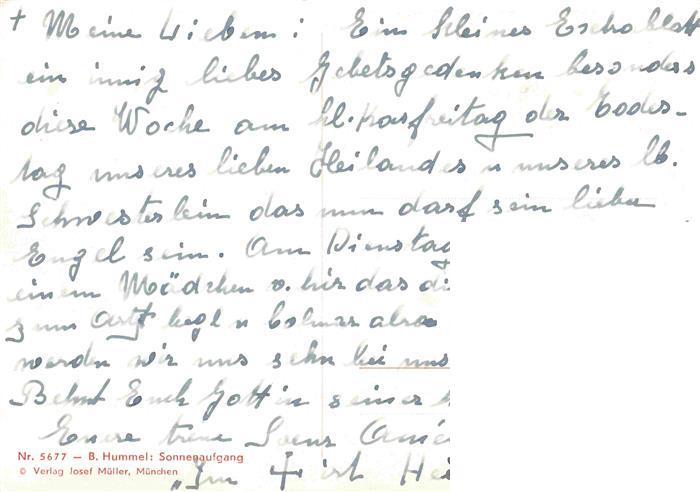 + Meine Lieben! Ein kleines
ein innig liebes Gebetsgedenken besonders
diese Woche am hl. Karfreitag der Todes-
tag unseres lieben Heilandes u unseres lb.
Schwesterlein das nun darf sein lieber
Engel sein. Am Dienstag
einem Mädchen v. hir das di
zum Arzt
werden wir uns sehn bei uns
Behüt Euch Gott in seiner
Euere treue
"Im + ist Hei
Nr. 5677 — B. Hummel: Sonnenaufgang
© Verlag Josef Müller, München